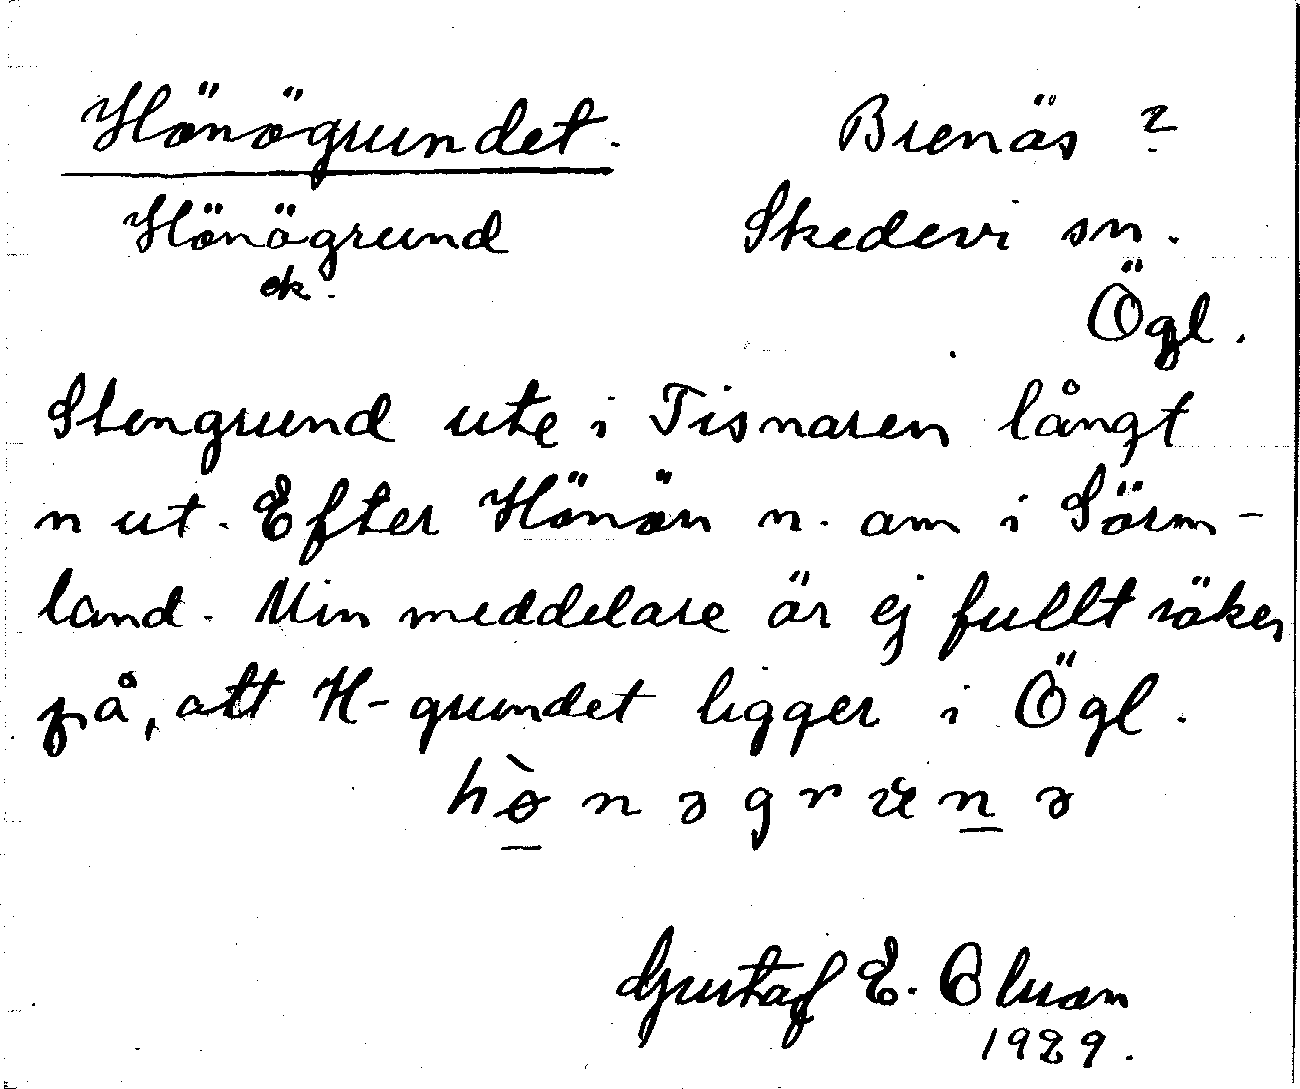 Hönögrundet. Brenäs ?
Hönögrund Skedevi sn.
ek.
Ögl.
Stengrund ute i Tisnaren långt
n ut. Efter Hönön n. om i Sörm-
land. Min meddelare är ej fullt säker
på, att H-grundet ligger i Ögl.
Gustaf E. Olson
1929.